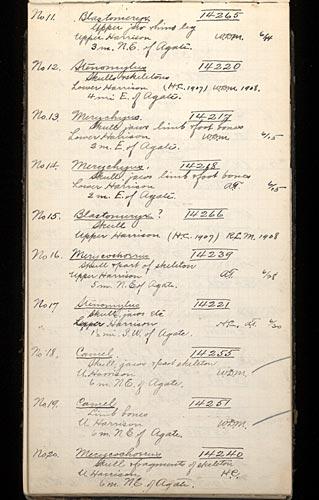 No 11. Blastomeryx 14265
Upper Jaw & hind leg
Upper Harrison W.D.M. 6/4
3 mi. N.E. of Agate.
No 12. Stenomylus 14220
Skulls & skeletons
Lower Harrison (H.C. 1907) W.D.M. 1908.
4 mi E. of Agate.
No 13. Merychyus 14217
Skull, jaws limb & foot bones
Lower Harrison W.D.M. 6/15
2 m. E. of Agate.
No 14. Merychyus. 14218
Skull, jaws limb & foot bones
Lower Harrison A.T. 6/15
2 m. E. of Agate.
No 15. Blastomeryx? 14266
Skull
Upper Harrison (H.C. 1907) R.L.M. 1908
No 16. Merycochoerus 14239
Skull & part of skeleton
Upper Harrison A.T. 6/18
5 m. N.E. of Agate.
No 17 Stenomylus 14221
Skull, jaws etc
Lower Harrison H.C., A.T. 6/30
1½ mi. S.W. of Agate.
No 18. Camel 14255
Skull, jaws & part skeleton
U. Harrison W.D.M.
6 m. N.E. of Agate.
No 19. Camel 14251
Limb bones
U Harrison W.D.M.
6 m N.E. of Agate.
No 20. Merycochoerus 14240
Skull & fragments of skeleton
U. Harrison H.C.
6 m. N.E. of Agate.